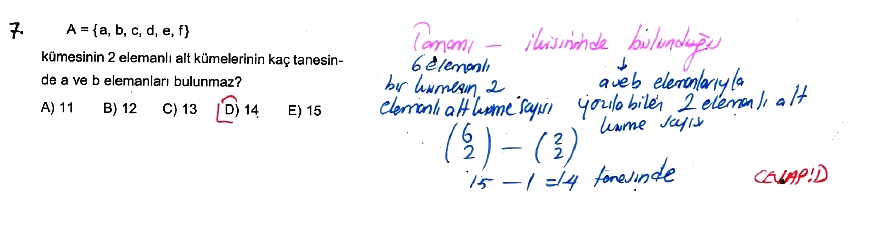 7. A = {a, b, c, d, e, f}
kümesinin 2 elemanlı alt kümelerinin kaç tanesin-
de a ve b elemanları bulunmaz?
A) 11 B) 12 C) 13 D) 14 E) 15
Tamamı — ikisininde bulunduğu
6 elemanlı
bir kümesin 2
elemanlı alt küme sayısı
↓
a ve b elemanlarıyla
yazılabilen 2 elemanlı alt
küme sayısı
(6 2) — (2 2)
15 — 1 = 14 tanesinde
CEVAP: D